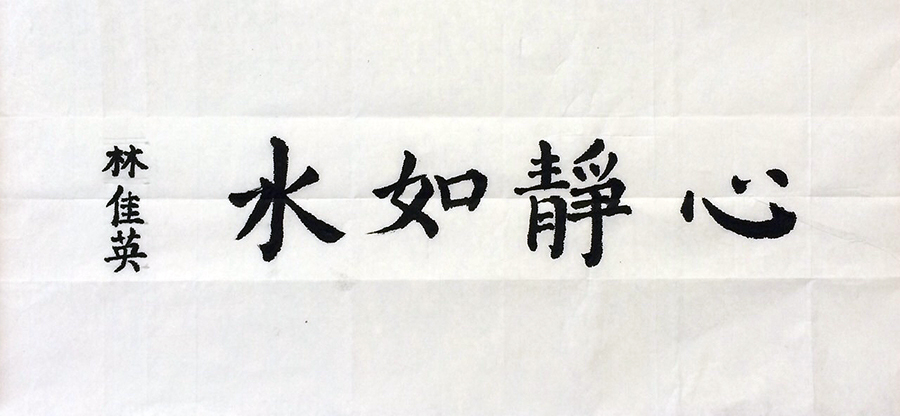 心靜如水
林佳英